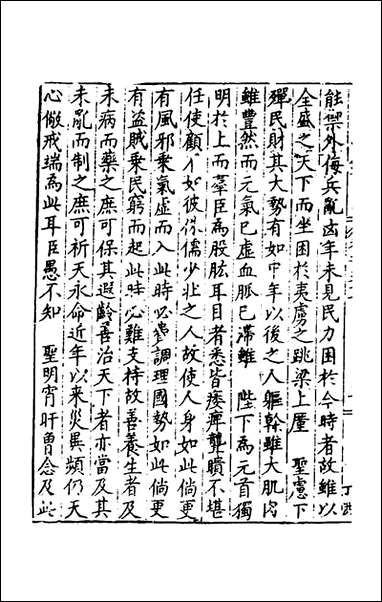 能禦外侮兵亂凶年未見民力困於今時者故雖以
全盛之天下而坐困於夷虜之跳梁上厪　聖慮下
殫民財其大勢有如中年以後之人軀幹雖大肌肉
雖豊然而元氣已虛血脈已滯雖　陛下為元首獨
明於上而羣臣為股肱耳目者悉皆痿痺聾瞶不堪
任使顧不如彼侏儒少壯之人故使人身如此倘更
有風邪乘氣虛而入此時必費調理國勢如此倘更
有盜賊乘民窮而起此時必難支持故善養生者及
未病而藥之庶可保其遐齡善治天下者亦當及其
未亂而制之庶可祈天永命近年以來災異頻仍天
心儆戒端為此耳臣愚不知　聖明宵旰曽念及此